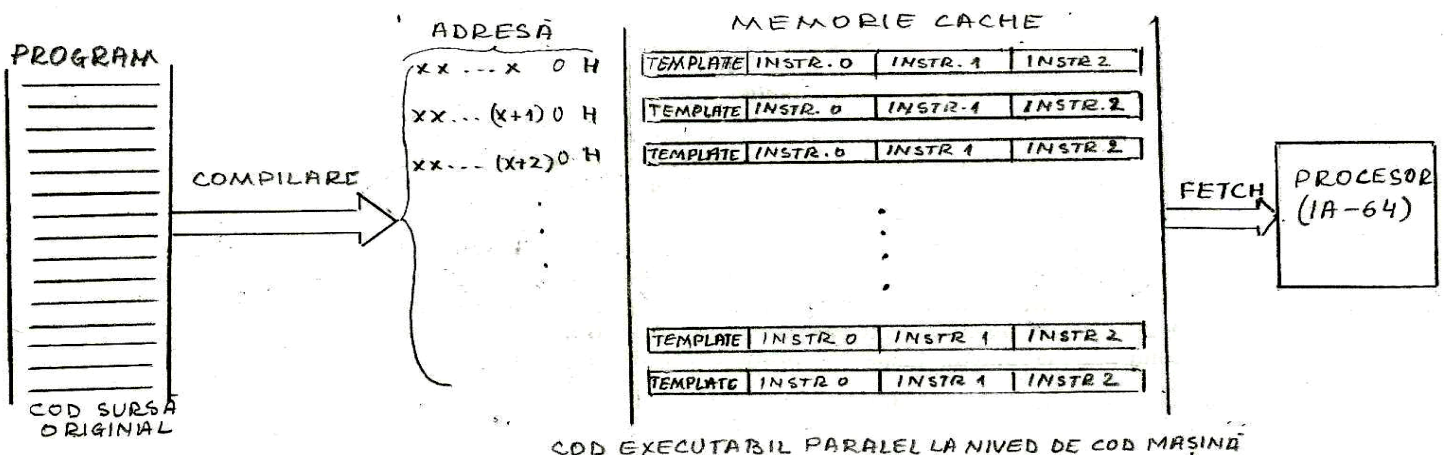 PROGRAM
COD SURSĂ
ORIGINAL
COMPILARE
ADRESĂ
xx ... x 0 H
xx... (x+1) 0 H
xx.... (x+2) 0 H
MEMORIE CACHE
TEMPLATE INSTR. 0 INSTR. 1 INSTR 2
TEMPLATE INSTR. 0 INSTR. 1 INSTR. 2
TEMPLATE INSTR. 0 INSTR 1 INSTR 2
TEMPLATE INSTR 0 INSTR 1 INSTR 2
TEMPLATE INSTR 0 INSTR 1 INSTR 2
FETCH
PROCESOR
(IA-64)
COD EXECUTABIL PARALEL LA NIVED DE COD MAȘINĂ